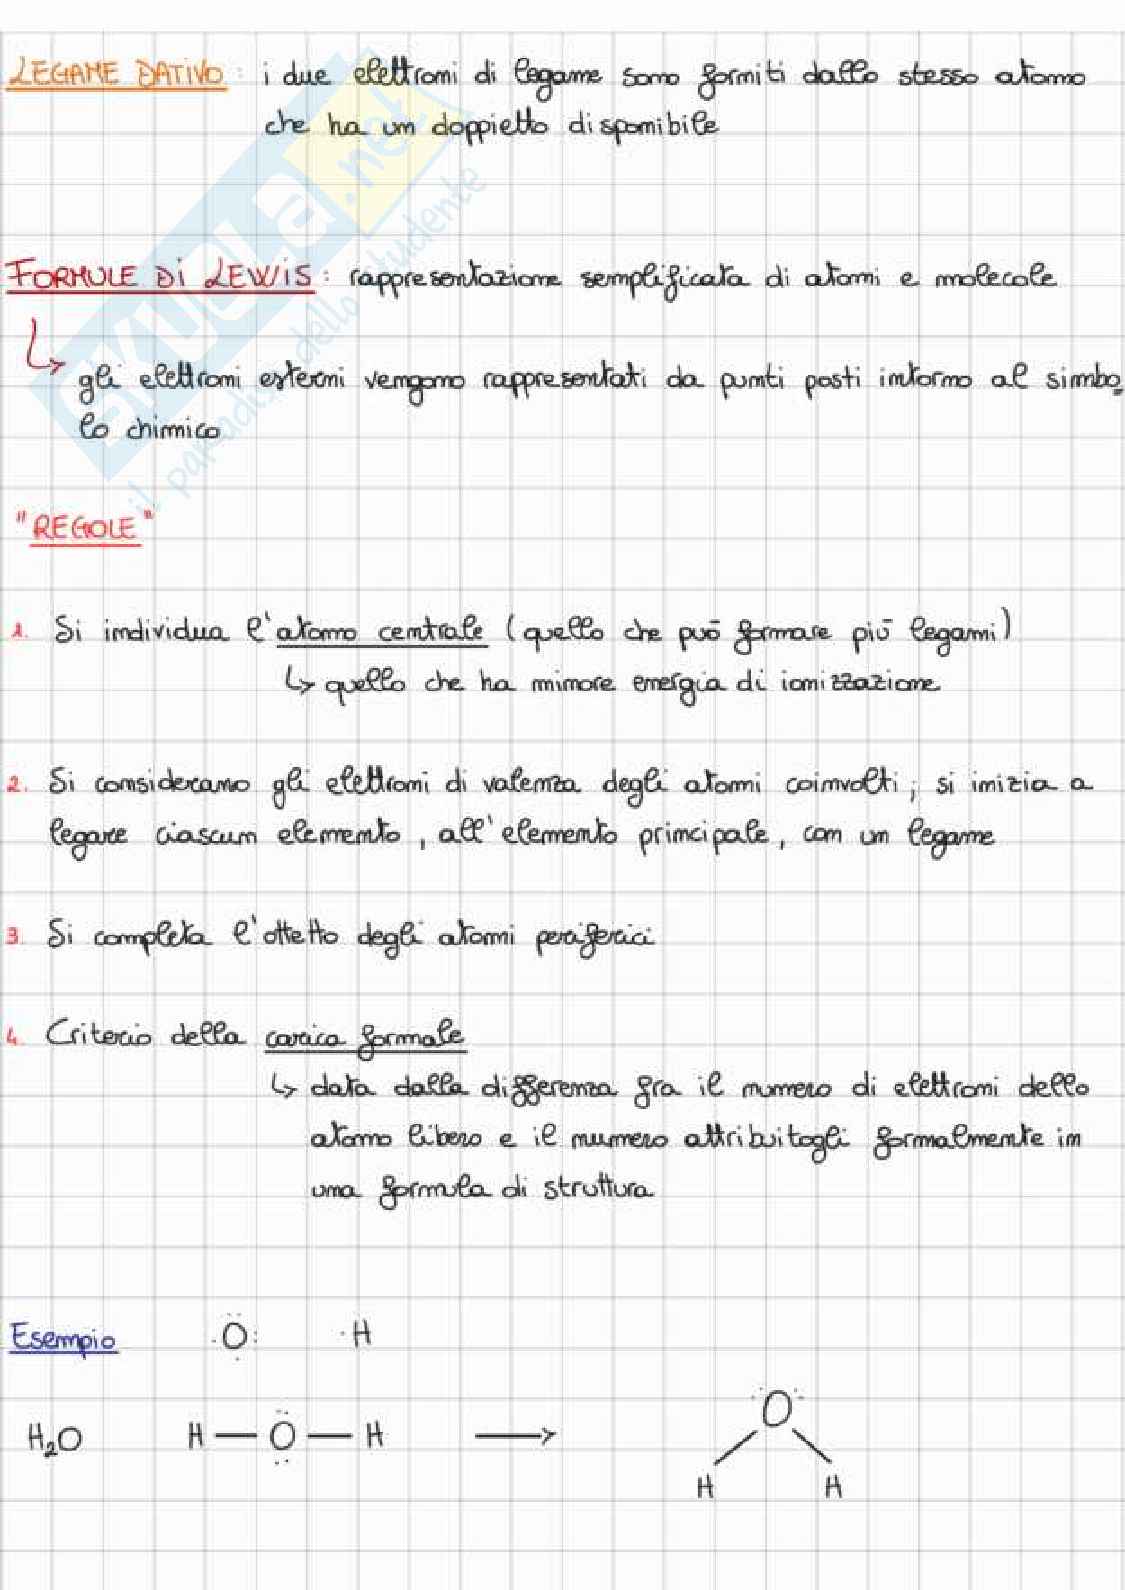 LEGAME DATIVO: i due elettroni di legame sono forniti dallo stesso atomo
che ha un doppietto disponibile
SKUOLA.net
il paradiso dello studente
FORMULE DI LEWIS: rappresentazione semplificata di atomi e molecole
↳ gli elettroni esterni vengono rappresentati da punti posti intorno al simbo
lo chimico
"REGOLE"
1. Si individua l'atomo centrale (quello che può formare più legami)
↳ quello che ha minore energia di ionizzazione
2. Si considerano gli elettroni di valenza degli atomi coinvolti; si inizia a
legare ciascun elemento, all'elemento principale, con un legame
3. Si completa l'ottetto degli atomi periferici
4. Criterio della carica formale
↳ data dalla differenza fra il numero di elettroni dello
atomo libero e il numero attribuitogli formalmente in
una formula di struttura
Esempio O H
H₂O H — O — H → O
H H